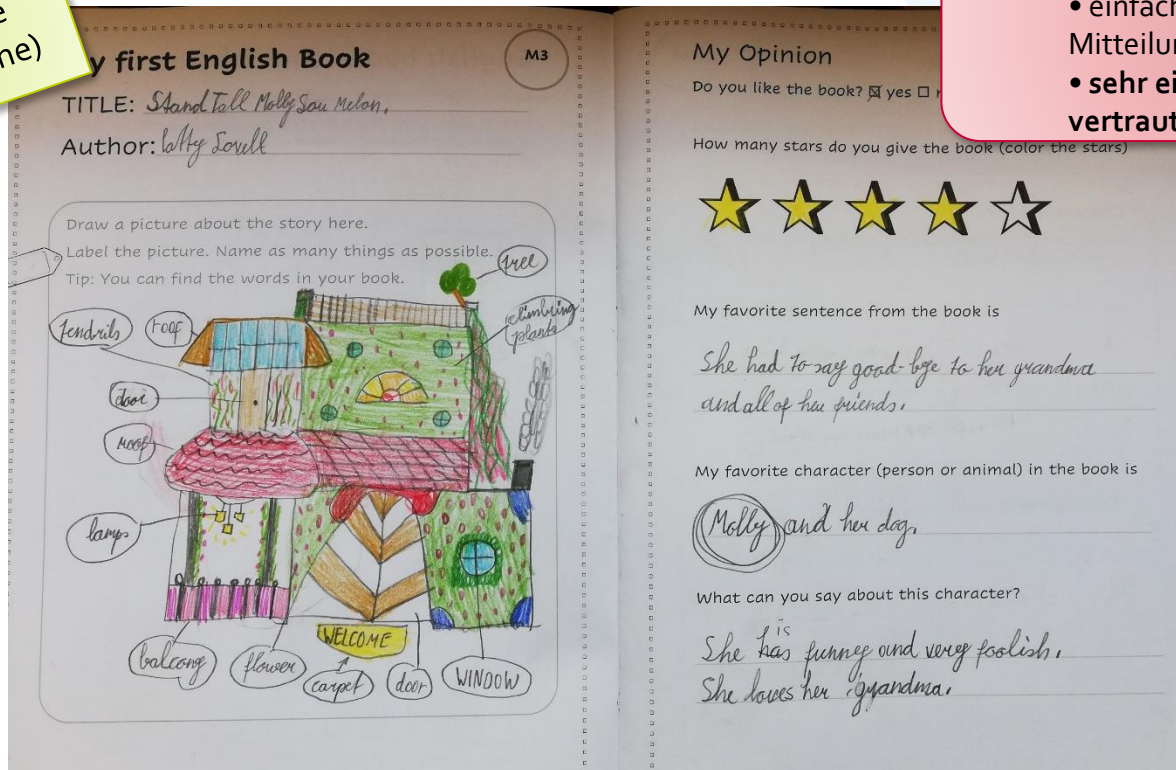 e
ne)
y first English Book
M3
TITLE: Stand Tall Molly Lou Melon.
Author: Patty Lovell
Draw a picture about the story here.
Label the picture. Name as many things as possible.
Tip: You can find the words in your book.
tree
climbing
plants
tendrils
roof
door
roof
lamps
WELCOME
balcong
flower
carpet
door
WINDOW
My Opinion
Do you like the book? ☒ yes ☐
How many stars do you give the book (color the stars)
My favorite sentence from the book is
She had to say good-bye to her grandma
and all of her friends.
My favorite character (person or animal) in the book is
Molly and her dog.
What can you say about this character?
is
She has funney and verey foolish.
She loves her grandma.
• einfach
Mitteilun
• sehr ei
vertraut